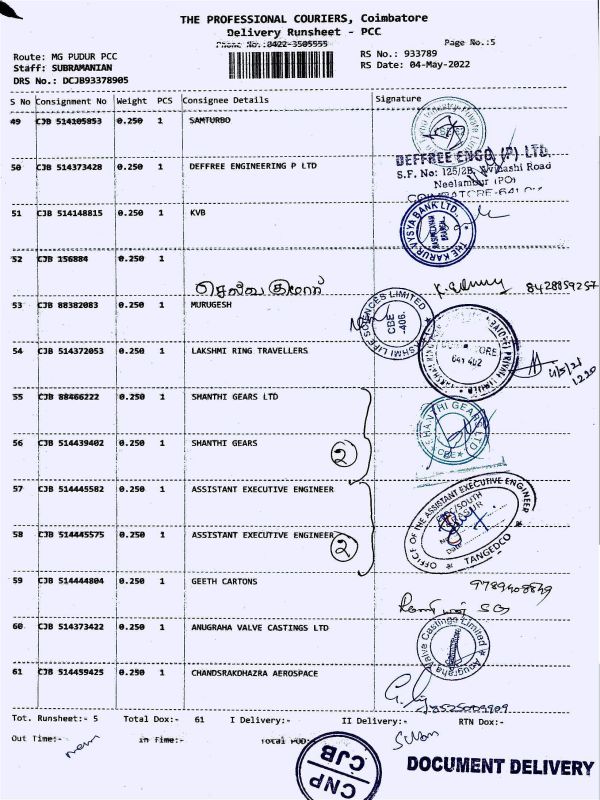 THE PROFESSIONAL COURIERS, Coimbatore
Delivery Runsheet - PCC
Phone No.:0422-3505555 Page No.:5
Route: MG PUDUR PCC RS No.: 933789
Staff: SUBRAMANIAN RS Date: 04-May-2022
DRS No.: DCJB93378905
S No Consignment No Weight PCS Consignee Details Signature
49 CJB 514105853 0.250 1 SAMTURBO
50 CJB 514373428 0.250 1 DEFFREE ENGINEERING P LTD
DEFFREE ENGG. (P) LTD.
S.F. No: 125/2B, Avinashi Road
Neelambur (PO)
COIMBATORE-641
51 CJB 514148815 0.250 1 KVB
THE KARUR VYSYA BANK LTD.
52 CJB 156884 0.250 1
செல்வகுமார் 8428859257
53 CJB 88382083 0.250 1 MURUGESH
LAKSHMI LIFE SCIENCES LIMITED
CBE
-406.
54 CJB 514372053 0.250 1 LAKSHMI RING TRAVELLERS
641 402
4/5/21
1220
55 CJB 88466222 0.250 1 SHANTHI GEARS LTD
SHANTHI GEARS LTD
CBE
56 CJB 514439402 0.250 1 SHANTHI GEARS
2
57 CJB 514445582 0.250 1 ASSISTANT EXECUTIVE ENGINEER
OFFICE OF THE ASSISTANT EXECUTIVE ENGINEER
TANGEDCO
58 CJB 514445575 0.250 1 ASSISTANT EXECUTIVE ENGINEER
2
59 CJB 514444804 0.250 1 GEETH CARTONS
9789408849
60 CJB 514373422 0.250 1 ANUGRAHA VALVE CASTINGS LTD
Anugraha Valve Castings Limited
61 CJB 514459425 0.250 1 CHANDSRAKDHAZRA AEROSPACE
Tot. Runsheet:- 5 Total Dox:- 61 I Delivery:- II Delivery:- RTN Dox:-
Out Time:- In Time:- Total POD:-
CNP
CJB
DOCUMENT DELIVERY